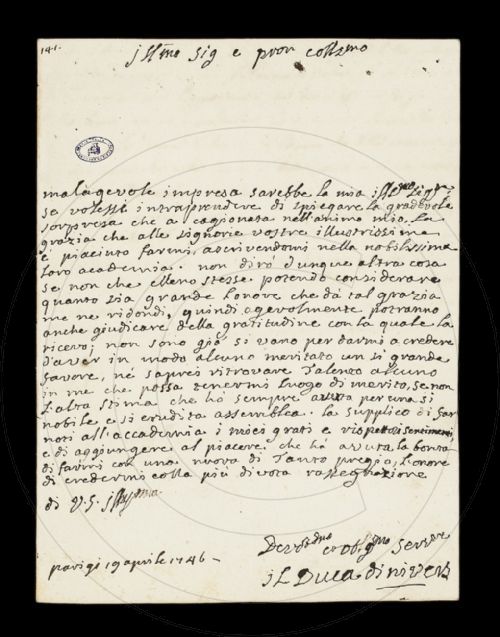 141.
Ill:mo sig e pron coll:mo
malagevole impresa sarebbe la mia ill:mi sig:ri
se volessi intraprendere di spiegare la gradevole
sorpresa che a cagionata nell'animo mio la
grazia che alle signorie vostre illustrissime
è piaciuto farmi, ascrivendomi nella nobilissima
loro academia: non dirò dunque altra cosa
se non che elleno stesse potendo considerare
quanto sia grande l'onore che da tal grazia
me ne ridondi, quindi agevolmente potranno
anche giudicare della gratitudine con la quale la
ricevo; non sono già si vano per darmi a credere
d'aver in modo alcuno meritato un si grande
favore, né saprei ritrovare talento alcuno
in me che possa tenermi luogo di merito, se non
l'alta stima che ho sempre avuta per una si
nobile e si erudita assemblea. la supplico di far
noti all'accademia i miei grati e rispettosi sentimenti,
e di aggiungere al piacere che ha avuta la bontà
di farmi con una nuova di tanto preggio, l'onore
di credermi colla più divota rassegnazione
di V.S. Ill:ma
parigi 19 aprile 1746
Devot:mo ed obblig:mo serv:re
il Duca di nivers